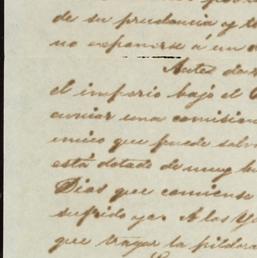 de su prudencia y
no esponerse á un
Antes de
el imperio bajo el
enviar una comision
unico que puede salv
está dotado de muy
Dios que comience
sufrido ya. A los
que tragar la pildora